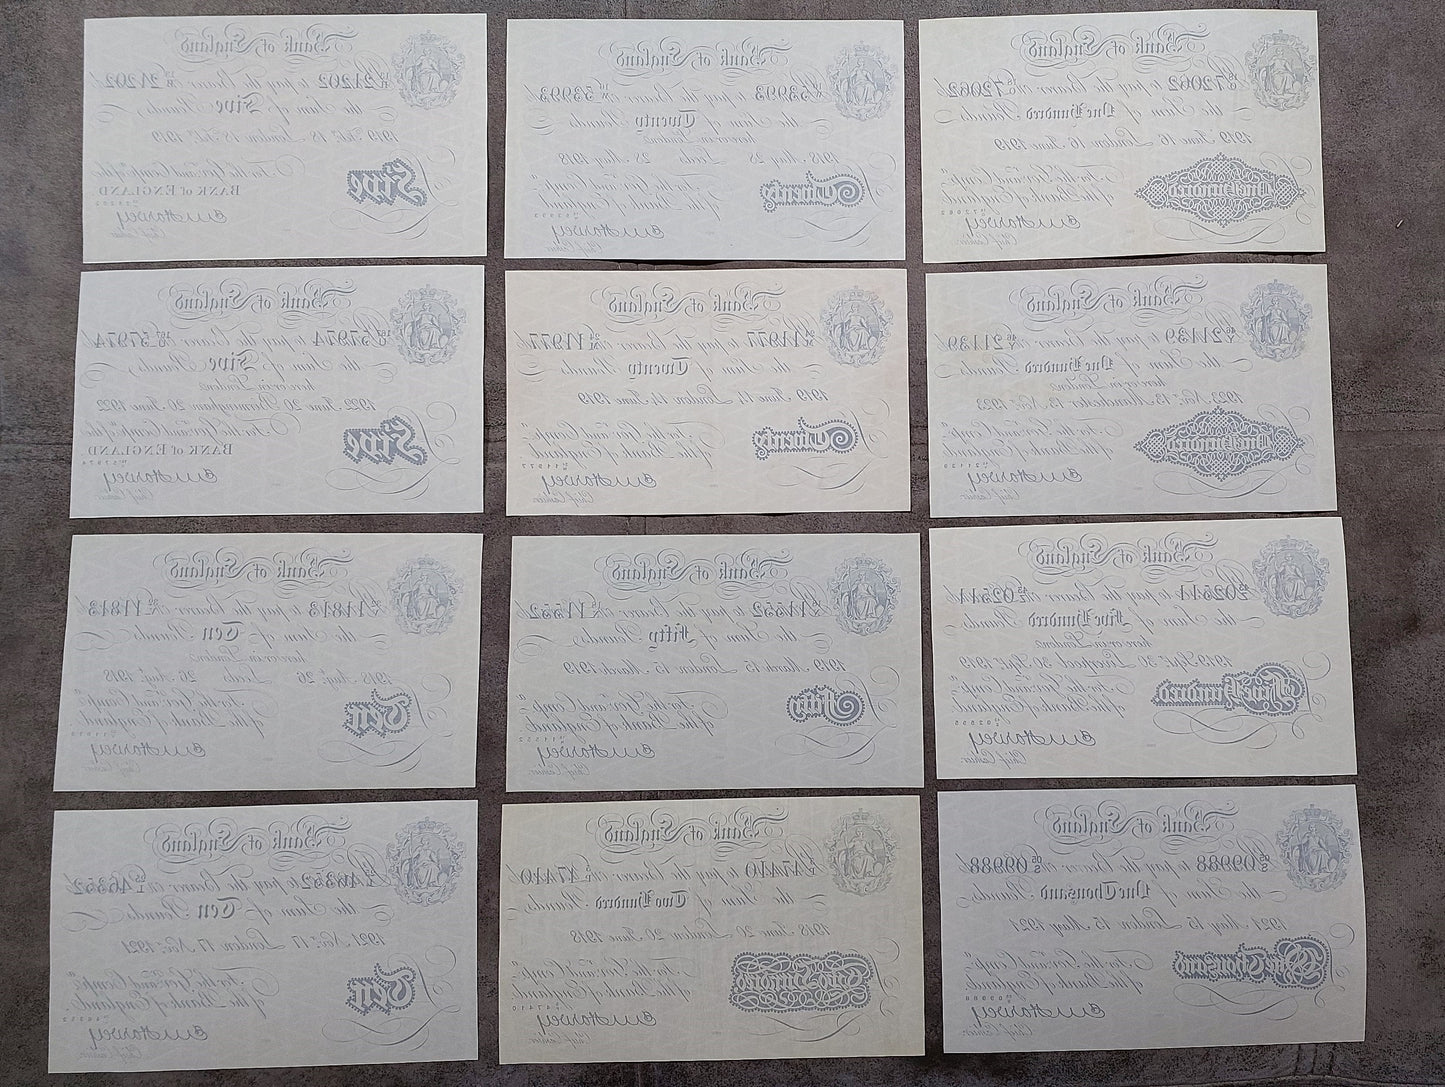 Bank of England
21202 to pay the Bearer on 21202
the Sum of Five Pounds
1919 Feb.y 18 London 18 Feb.y 1919
For the Gov.r and Comp.a of the
BANK of ENGLAND
E.M. Harvey
Chief Cashier.
Bank of England
53993 to pay the Bearer on 53993
the Sum of Twenty Pounds
here or in London
1918 May 28 Leeds 28 May 1918
For the Gov.r and Comp.a
of the Bank of England.
Twenty
E.M. Harvey
Chief Cashier.
Bank of England
72062 to pay the Bearer on 72062
the Sum of One Hundred Pounds
1919 June 16 London 16 June 1919
For the Gov.r and Comp.a
of the Bank of England.
One Hundred
E.M. Harvey
Chief Cashier.
Bank of England
57974 to pay the Bearer on 57974
the Sum of Five Pounds
here or in London
1922 June 20 Birmingham 20 June 1922
For the Gov.r and Comp.a of the
BANK of ENGLAND
Five
E.M. Harvey
Chief Cashier.
Bank of England
11977 to pay the Bearer on 11977
the Sum of Twenty Pounds
1919 June 14 London 14 June 1919
For the Gov.r and Comp.a
of the Bank of England.
Twenty
E.M. Harvey
Chief Cashier.
Bank of England
21139 to pay the Bearer on 21139
the Sum of One Hundred Pounds
here or in London
1923 Nov.r 13 Manchester 13 Nov.r 1923
For the Gov.r and Comp.a
of the Bank of England.
One Hundred
E.M. Harvey
Chief Cashier.
Bank of England
11813 to pay the Bearer on 11813
the Sum of Ten Pounds
here or in London
1918 Aug.t 26 Leeds 26 Aug.t 1918
For the Gov.r and Comp.a
of the Bank of England.
Ten
E.M. Harvey
Chief Cashier.
Bank of England
11552 to pay the Bearer on 11552
the Sum of Fifty Pounds
1919 March 15 London 15 March 1919
For the Gov.r and Comp.a
of the Bank of England.
Fifty
E.M. Harvey
Chief Cashier.
Bank of England
02511 to pay the Bearer on 02511
the Sum of Five Hundred Pounds
here or in London
1919 Sept.r 30 Liverpool 30 Sept.r 1919
For the Gov.r and Comp.a
of the Bank of England.
Five Hundred
E.M. Harvey
Chief Cashier.
Bank of England
46352 to pay the Bearer on 46352
the Sum of Ten Pounds
1921 Nov.r 17 London 17 Nov.r 1921
For the Gov.r and Comp.a
of the Bank of England.
Ten
E.M. Harvey
Chief Cashier.
Bank of England
47410 to pay the Bearer on 47410
the Sum of Two Hundred Pounds
1918 June 20 London 20 June 1918
For the Gov.r and Comp.a
of the Bank of England.
Two Hundred
E.M. Harvey
Chief Cashier.
Bank of England
09988 to pay the Bearer on 09988
the Sum of One Thousand Pounds
1921 May 15 London 15 May 1921
For the Gov.r and Comp.a
of the Bank of England.
One Thousand
E.M. Harvey
Chief Cashier.